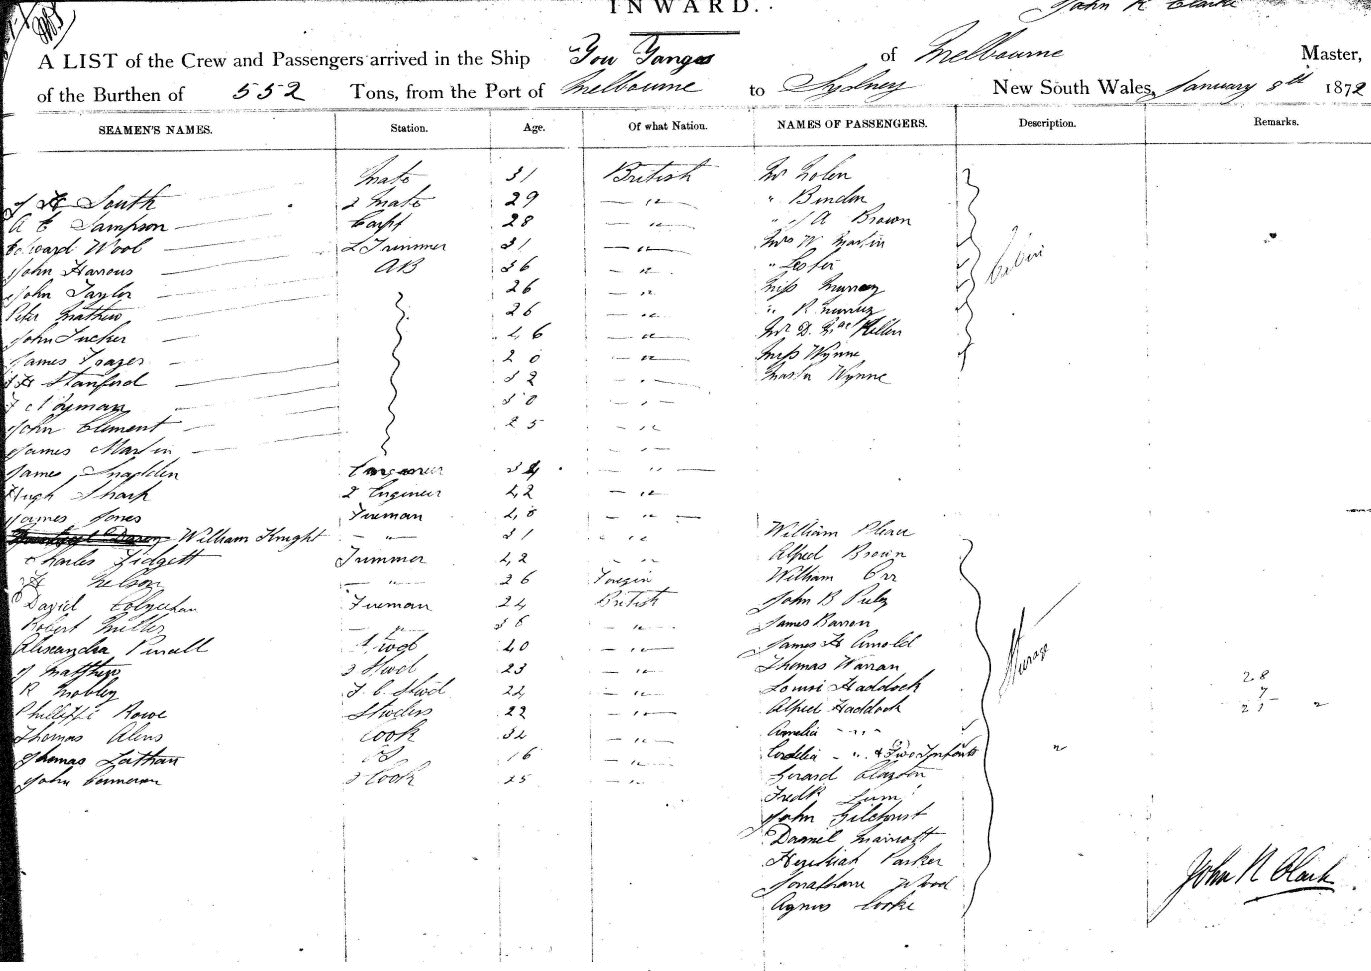 INWARD.
John R Clarke
A LIST of the Crew and Passengers arrived in the Ship You Yangs of Melbourne Master,
of the Burthen of 552 Tons, from the Port of Melbourne to Sydney New South Wales, January 8th 1872
SEAMEN'S NAMES. Station. Age. Of what Nation. NAMES OF PASSENGERS. Description. Remarks.
Mate 31 British Mr Nolen
J H South 2 Mate 29 — " — " Bindon
A E Sampson Carpt 28 — " — " J A Brown
Edward Wood L Trimmer 31 — " — Mrs W Martin
John Harrous AB 36 — " — " Lester Cabin
John Taylor 26 — " Miss Murray
Peter Mathew 26 — " — " R Murray
John Tucker 46 — " — Mr D Mac Kellen
James Frazer 20 — " — Miss Wynne
J H Stanford 32 — " — Master Wynne
F Nyman 30 — "
John Clement 25 — "
James Martin — "
James Snadden Engineer 34 — " —
Hugh Sharp 2 Engineer 42 — "
James Jones Fireman 40 — " —
William Knight — " — 31 " William Please
Charles Fidgett Trimmer 42 " Alfred Brown
H Nelson — " — 26 Foregin William Orr
David Fireman 24 British John B Puly
Robert Miller — " — 36 — " James Barron
Alixandra Purall Stwd 40 — " — James H Arnold
J Matthew 2 Stwd 23 — " — Thomas Warran Sturage
R Mobley F C Stwd 22 — " — Louisi Haddock 28
Phillippi Rowe Stwdess 22 — " — Alfred Haddock 7
Thomas Alens Cook 32 — " — Amelia — " — 21 "
Thomas Lathan OS 16 — " — Cordelia — " & Two Infants "
John Cameron 2 Cook 25 — " Gerard Clayton
Fredk Lum
John Gilchrist
Daniel Marriott
Hezekiah Parker
Jonathan Wood
Agnes Cooke
John R Clark